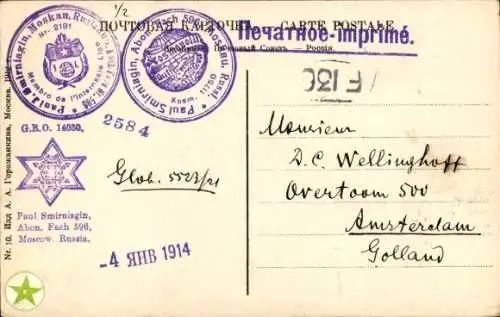 1/2
ПОЧТОВАЯ КАРТОЧКА. CARTE POSTALE.
Печатное-imprimé.
Всемірный Почтовый Союзъ. Россія.
Paul J. Smirniagin, Moskau, Russland
Nr. 2191
Membro de l'Internacia
Paul Smirniagin, Abon. Fach 596, Moskau, Russl.
Kosm.
G.B.O. 14030.
2584
F 130
Paul Smirniagin,
Abon. Fach 596,
Moscow. Russia.
Glob. 5523/21
-4 ЯНВ 1914
Monsieur
D. C. Wellinghoff
Overtoom 500
Amsterdam
Golland
Nr. 10. Изд. А. А. Горожанкина, Москва.